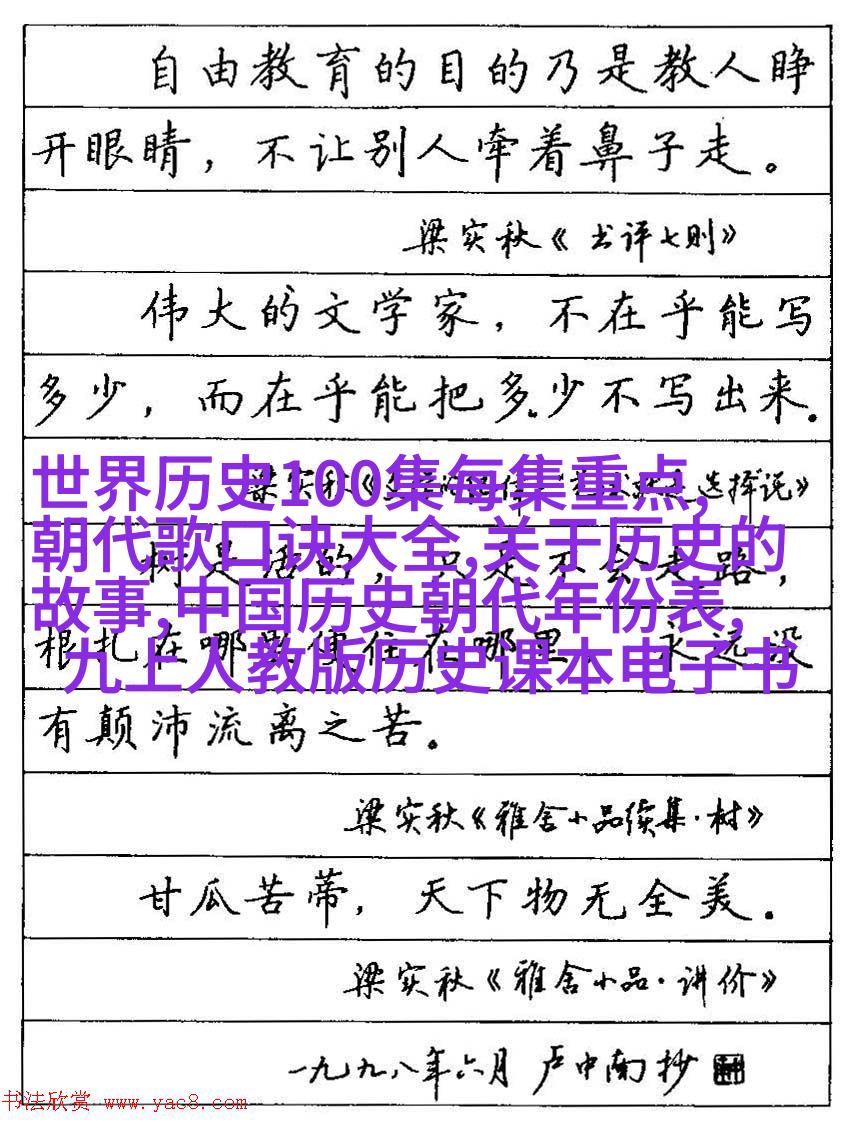 自由教育的目的乃是教人睁
开眼睛，不让别人牵着鼻子走。
梁实秋《书评七则》
伟大的文学家，不在乎能写
多少，而在乎能把多少不写出来.
梁实秋《 选择说》
世界历史100集每集重点,
朝代歌口诀大全,关于历史的
树是活的，只是不会走路，
故事,中国历史朝代年份表,
根扎在哪里便住在哪里 永远没
九上人教版历史课本电子书
有颠沛流离之苦。
梁实秋《雅舍小品续集·树》
甘瓜苦蒂，天下物无全美.
梁实秋《雅舍小品·讲价》
一九九八年六月 卢中南抄
书法欣赏 www.yac8.com